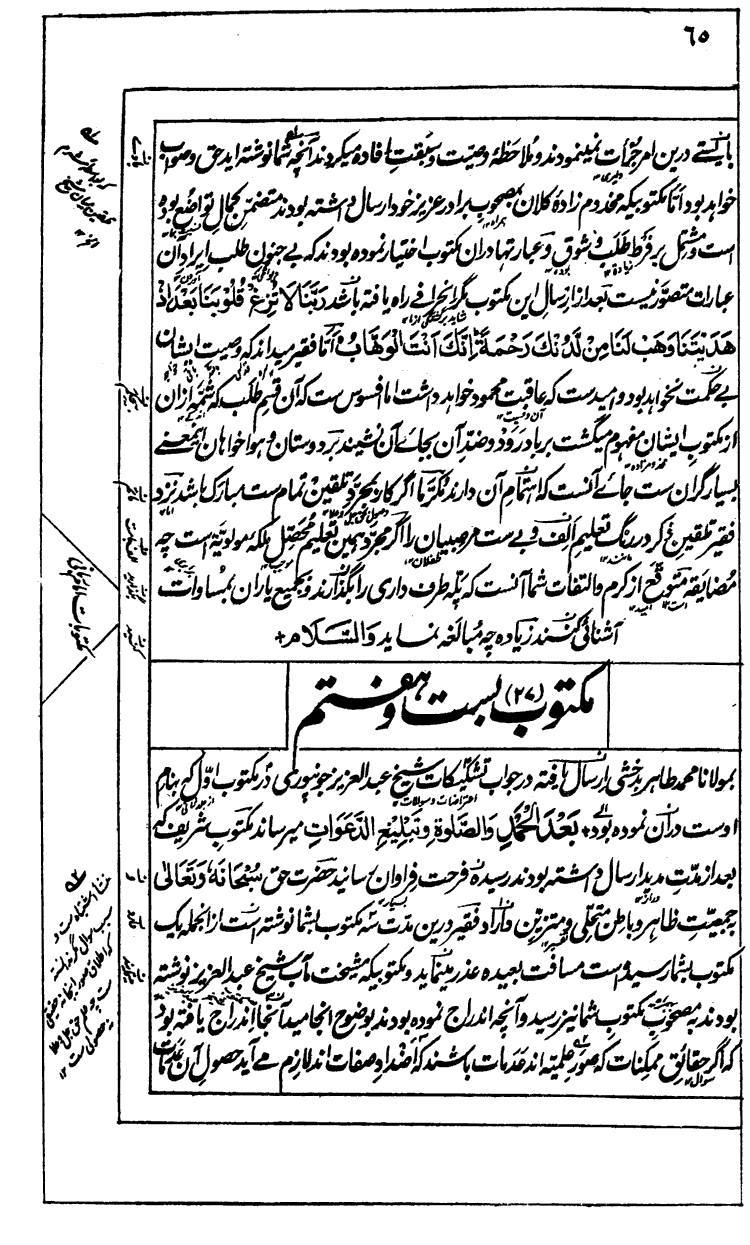 ٦٥
بایستے درین امر جرأت نمینمودند و ملاحظۀ وصیت و سبقتِ افاده میکردند آنچه شما نوشته اید حق وصواب
خواهد بود امّا مکتوبیکه مخدوم زادۀ کلان بمصحوب برادر عزیز خود ارسال داشته بودند متضمّن کمال تواضع بوده
است و مشتمل بر فرطِ طلب و شوق و عبارتها دران مکتوب اختیار نموده بودند که بے جنونِ طلب ایراد آن
عبارات متصوّر نیست بعد از ارسال این مکتوب مگر انحرافے راه یافته باشد رَبَّنَا لَا تُزِغْ قُلُوْبَنَا بَعْدَ اِذْ
هَدَيْتَنَا وَهَبْ لَنَا مِنْ لَّدُنْكَ رَحْمَةً اِنَّكَ اَنْتَ الْوَهَّابُ امّا فقیر میداند که وصیت ایشان
بے حکمت نخواهد بود و امیدست که عاقبت محمود خواهد داشت اما افسوس ست که آن قسم طلب که شمّه ازان
از مکتوب ایشان مفهوم میگشت برباد رود و ضدِ آن بجائے آن نشیند بر دوستان و هوا خواهان اینمعنے
بسیار گران ست جائے آنست که اهتمام آن دارند مکرّما اگر کار بمجرّد تلقین تمام ست مبارک باشد نزد
فقیر تلقین ذکر در رنگ تعلیم الف و بے ست مر صبیان را اگر مجرّد همین تعلیم محصّل ملکۀ مولویّه است چه
مضایقه متوقّع از کرم و التفات شما آنست که پلۀ طرف داری را بگذارند و بجمیع یاران بمساوات
آشنائی کنند زیاده چه مبالغه نماید والسَّلام+
مکتوب (۲۷) بست و هفتم
بمولانا محمد طاهر بدخشی ارسال یافته در جواب تشکیکات شیخ عبد العزیز جونپوری که در مکتوب اوّل که بنام
اوست دران نموده بود+ بَعْدَ الْحَمْدِ وَالصَّلٰوةِ وَتَبْلِيْغِ الدَّعَوَاتِ میرساند مکتوب شریف که
بعد از مدتِ مدید ارسال داشته بودند رسیده فرحت فراوان رسانید حضرت حق سُبْحَانَهٗ وَتَعَالٰى
بجمعیّتِ ظاهر و باطن متحلّی و متزیّن داراد فقیر درین مدّت سه مکتوب بشما نوشته است ازانجمله یک
مکتوب بشما رسیده است مسافت بعیده عذر مینماید و مکتوبیکه مشیخت مآب شیخ عبد العزیز نوشته
بودند به مصحوبِ مکتوب شما نیز رسید و آنچه اندراج نموده بودند بوضوح انجامید آنجا اندراج یافته بود
که اگر حقائقِ ممکنات که صور علمیّه اند عدمات باشند که اضداد صفات اند لازم مے آید حصولِ آن عدمات
مکتوبات امام ربانی